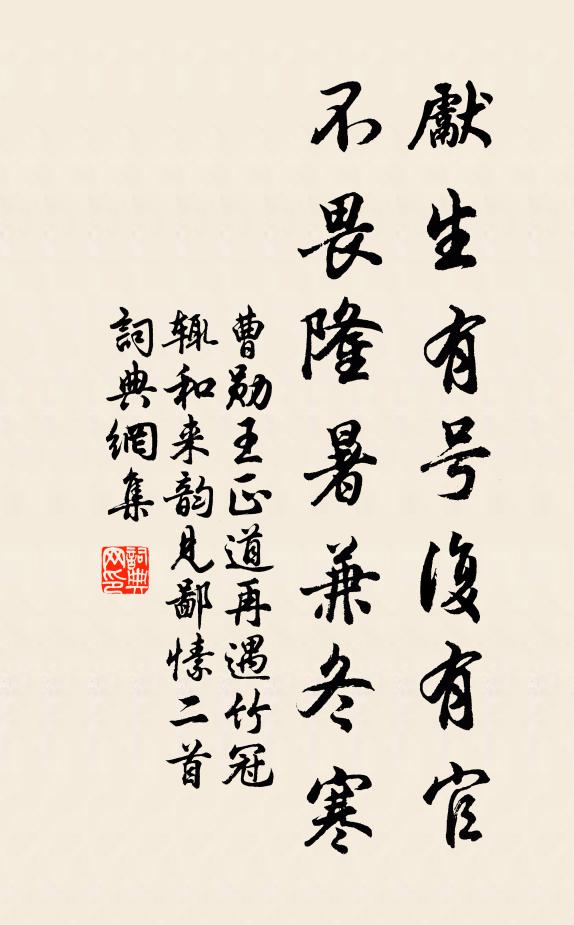 獻生有号復有官
不畏隆暑兼冬寒
曹勋王正道再遇竹冠
辄和来韵見鄙愫二首
詞典網集
詞典网印